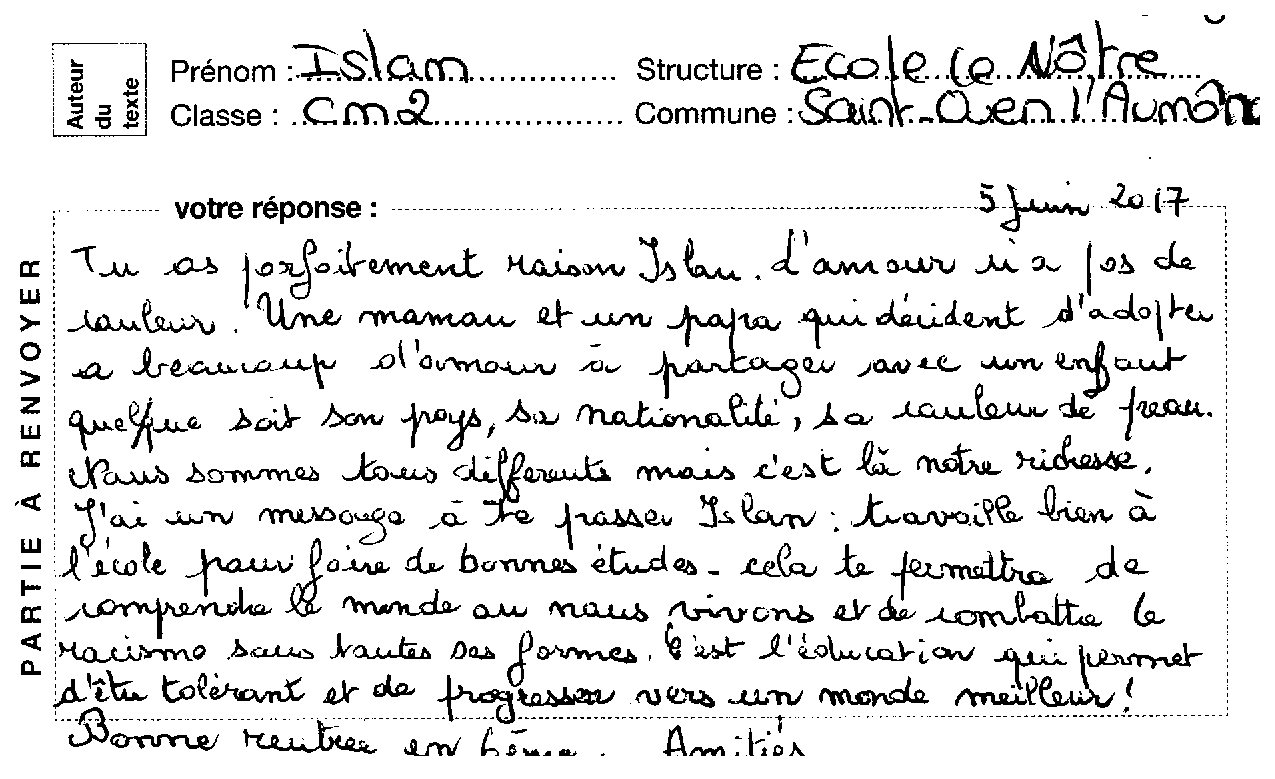 Auteur du texte
Prénom : Islam Structure : Ecole le Nôtre
Classe : CM2 Commune : Saint-Ouen l'Aumône
votre réponse : 5 Juin 2017
PARTIE À RENVOYER
Tu as parfaitement raison Islam. L'amour n'a pas de
couleur. Une maman et un papa qui décident d'adopter
a beaucoup d'amour à partager avec un enfant
quelque soit son pays, sa nationalité, sa couleur de peau.
Nous sommes tous différents mais c'est là notre richesse.
J'ai un message à te passer Islam : travaille bien à
l'école pour faire de bonnes études - cela te permettra de
comprendre le monde où nous vivons et de combattre le
racisme sous toutes ses formes. C'est l'éducation qui permet
d'être tolérant et de progresser vers un monde meilleur !
Bonne rentrée en 6ème. Amitiés